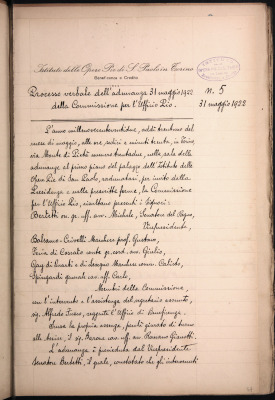 Istituto delle Opere Pie di S. Paolo in Torino
Beneficenza e Credito
Processo verbale dell'adunanza 31 maggio 1922
della Commissione per l'Ufficio Pio.
N. 5
31 maggio 1922
L'anno millenovecentoventidue, addì trentuno del
mese di maggio, alle ore sedici e minuti trenta, in Torino,
via Monte di Pietà numero trentadue, nella sala delle
adunanze al primo piano del palazzo dell'Istituto delle
Opere Pie di San Paolo, radunatasi, per invito della
Presidenza e nelle prescritte forme, la Commissione
per l'Ufficio Pio, risultano presenti i Signori:
Bertetti on. gr. uff. avv. Michele, Senatore del Regno,
Vicepresidente,
Balsamo-Crivelli Marchese prof. Gustavo,
Feria di Cossato conte gr. cord. avv. Giulio,
Gay di Quarti e di Avagna Marchese comm. Calisto,
Spingardi generale cav. uff. Carlo,
Membri della Commissione,
con l'intervento e l'assistenza del segretario assunto,
sig. Alfredo Fusso, reggente l'Ufficio di Beneficenza.
Scusa la propria assenza, perchè giurato di turno
alle Assise, il sig. Barone cav. uff. avv. Romano Gianotti.
L'adunanza è presieduta dal Vicepresidente
Senatore Bertetti, il quale, constatato che gli intervenuti